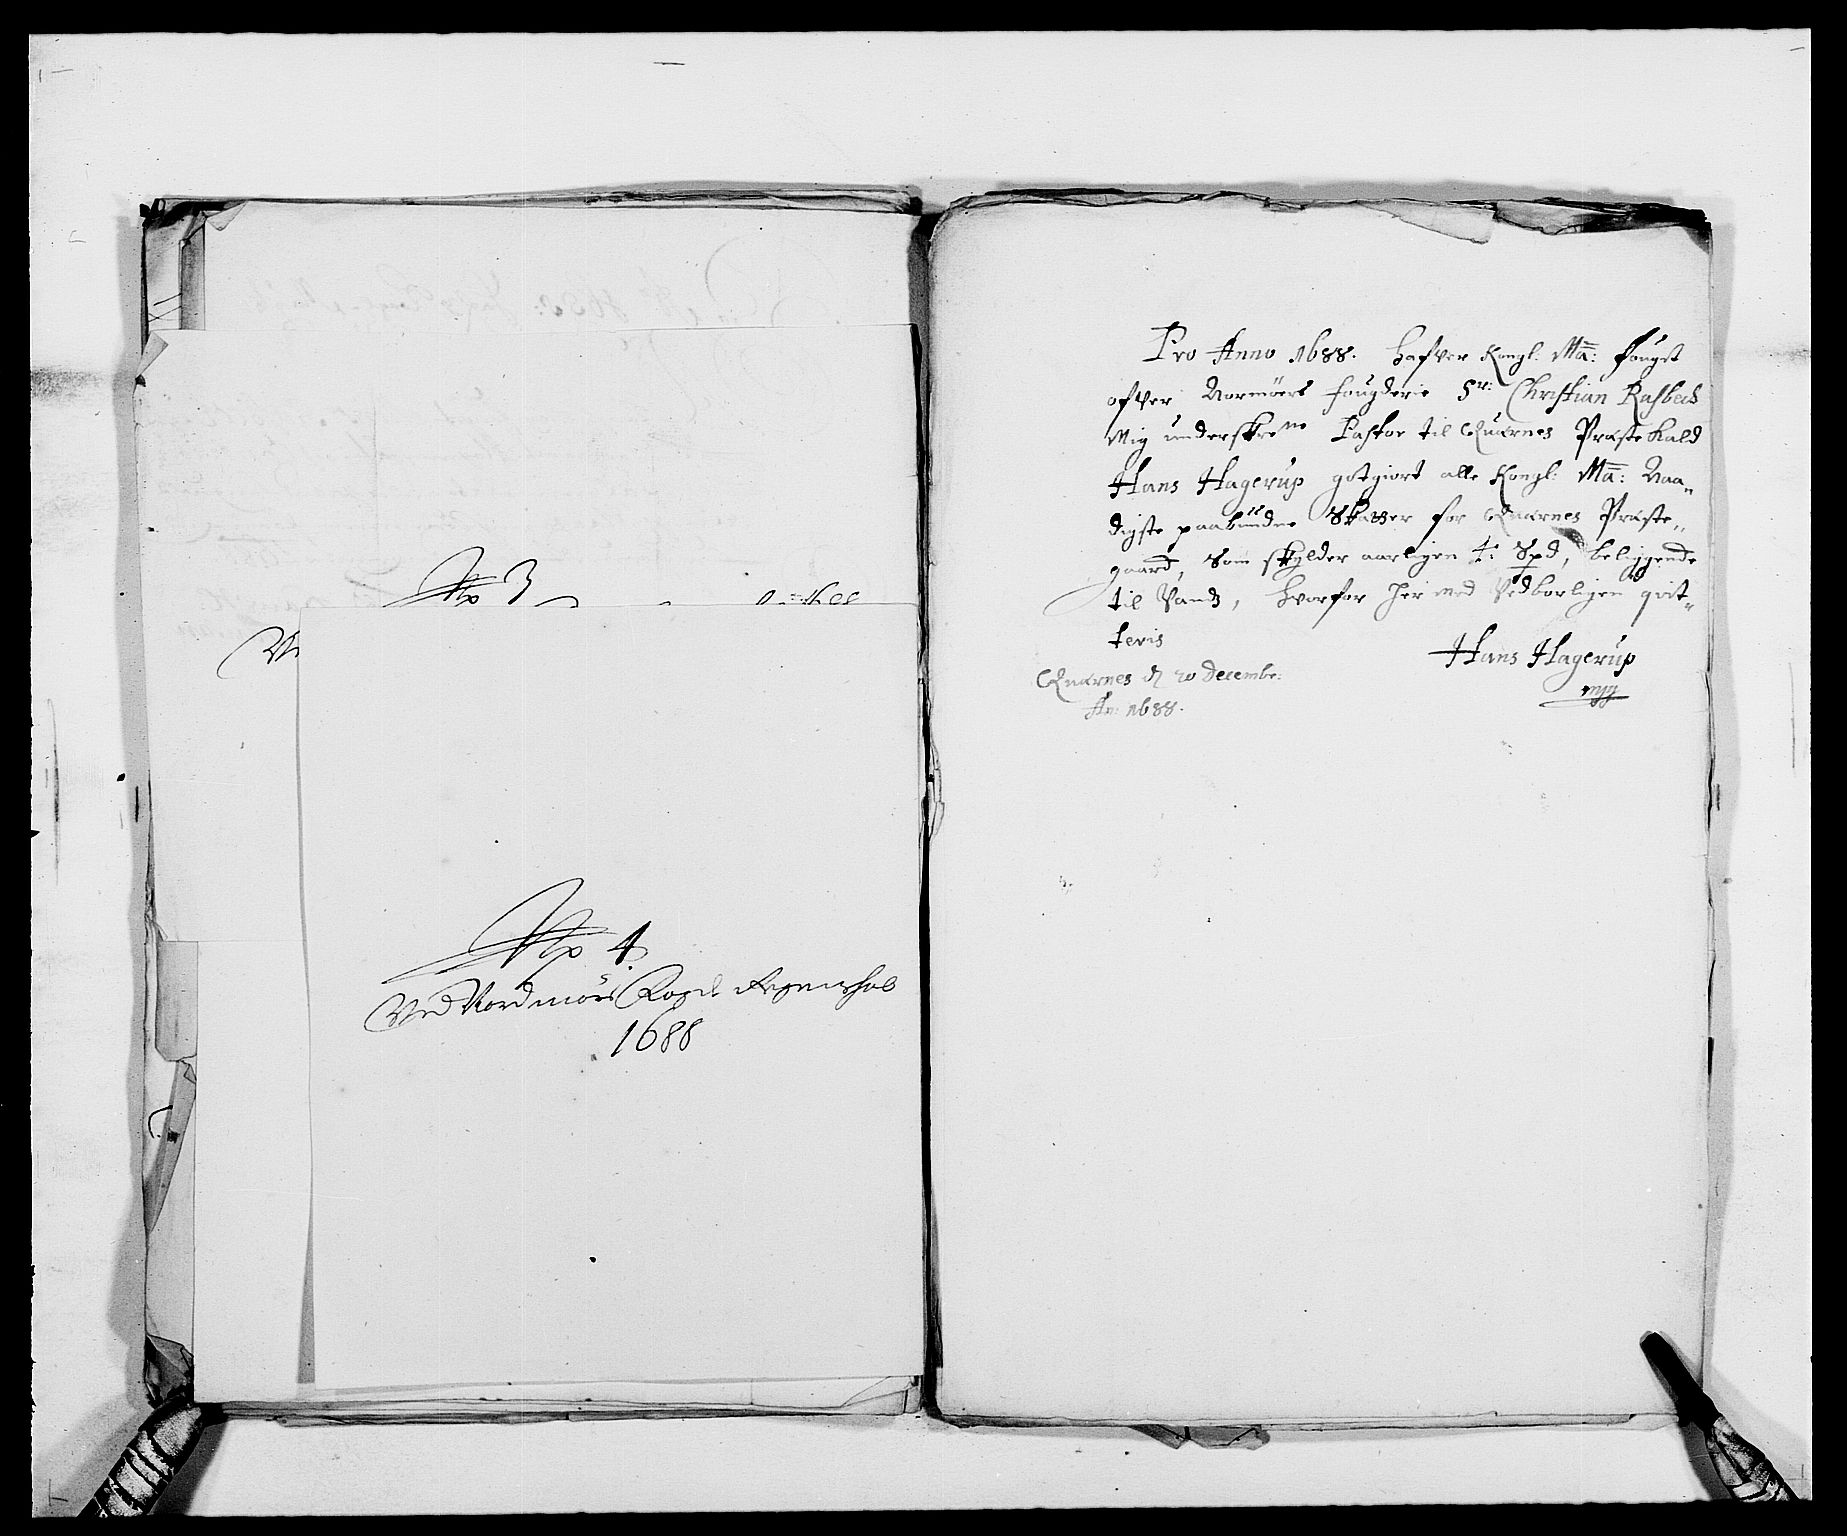 No 3
No 4
Ved Nordmørs Fogd. Regenschab
1688
Pro Anno 1688. hafver Kongl: Ma: fougt
ofver Normøers fougderie Sr: Christian Rasbech
Mig underskrefne Pastor til Quærnes Præstekald
Hans Hagerup gotgiort alle Kongl: Ma: Naa-
digste paabudne Skatter for Quærnes Præste-
gaard, Som skylder aarligen 4: Spd, beliggende
til Sands, hvorfor her med Vedborligen qvit-
teris
Quærnes d 20 Decembr:
An: 1688.
Hans Hagerup
mpp